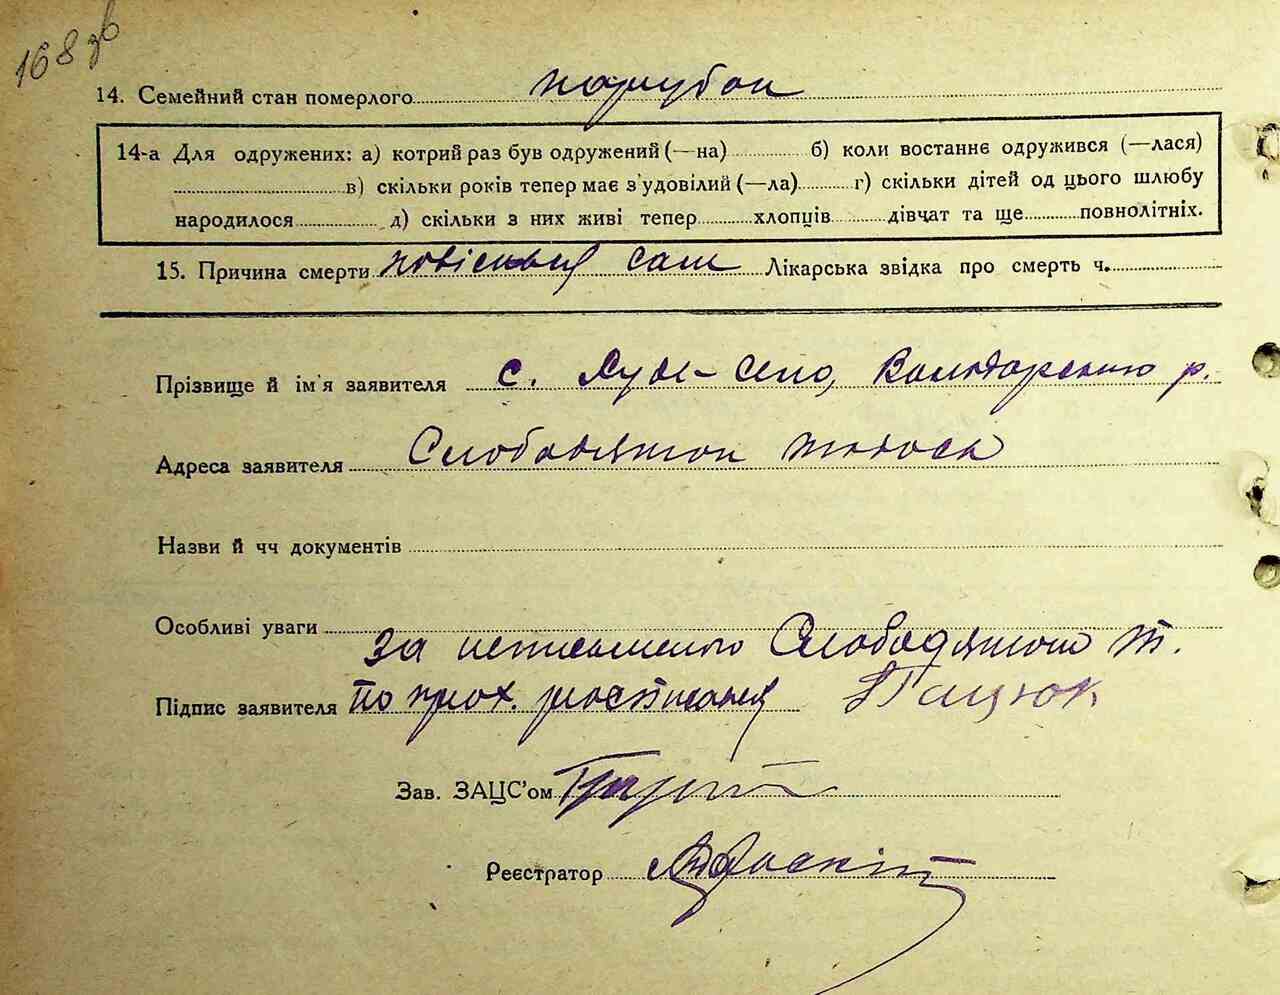 168 зв
14. Семейний стан померлого парубок
14-а Для одружених: а) котрий раз був одружений (—на) б) коли востаннє одружився (—лася)
в) скільки років тепер має з'удовілий (—ла) г) скільки дітей од цього шлюбу
народилося д) скільки з них живі тепер хлопців дівчат та ще повнолітніх.
15. Причина смерти повісився сам Лікарська звідка про смерть ч.
Прізвище й ім'я заявителя с. Село, р.
Адреса заявителя Слободянюк
Назви й чч документів
Особливі уваги
За неписьменого Слободянюка Т.
Підпис заявителя по прох. розписався Пацюк
Зав. ЗАЦС'ом
Реєстратор